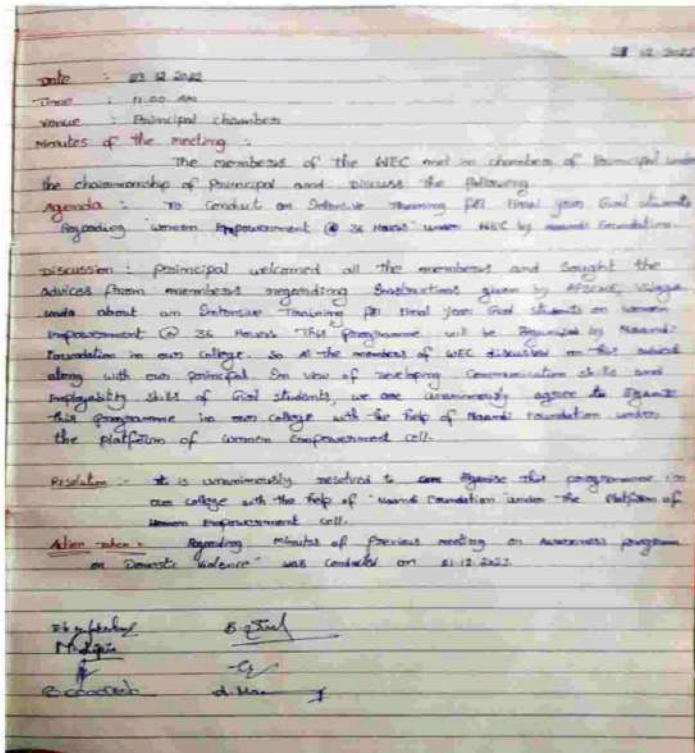 12 2022
Date : 12 2022
Time : 11.00 AM
Venue : Principal chamber
Minutes of the meeting :
The members of the WEC met in chamber of Principal under
the chairmanship of Principal and Discuss the following
Agenda : To Conduct an Intensive Training for Final year Girl students
Regarding "women Empowerment @ 36 Hours" under WEC by Naandi Foundation.
Discussion : principal welcomed all the members and Sought the
advices from members regarding Instructions given by APSCHE,
about an Intensive Training for Final year Girl students on women
Empowerment @ 36 Hours This programme will be Organised by Naandi
Foundation in our college. So All the members of WEC discussed on this
along with our principal In view of Developing Communication skills and
Employability skills of Girl students, we are unanimously agree to
this programme in our college with the help of Naandi Foundation under
the platform of women empowerment cell.
Resolution :- It is unanimously resolved to Organise this programme in
our college with the help of "Naandi Foundation" under the Platform of
women Empowerment cell.
Action taken :- Regarding Minutes of Previous meeting on Awareness program
on Domestic violence" was conducted on